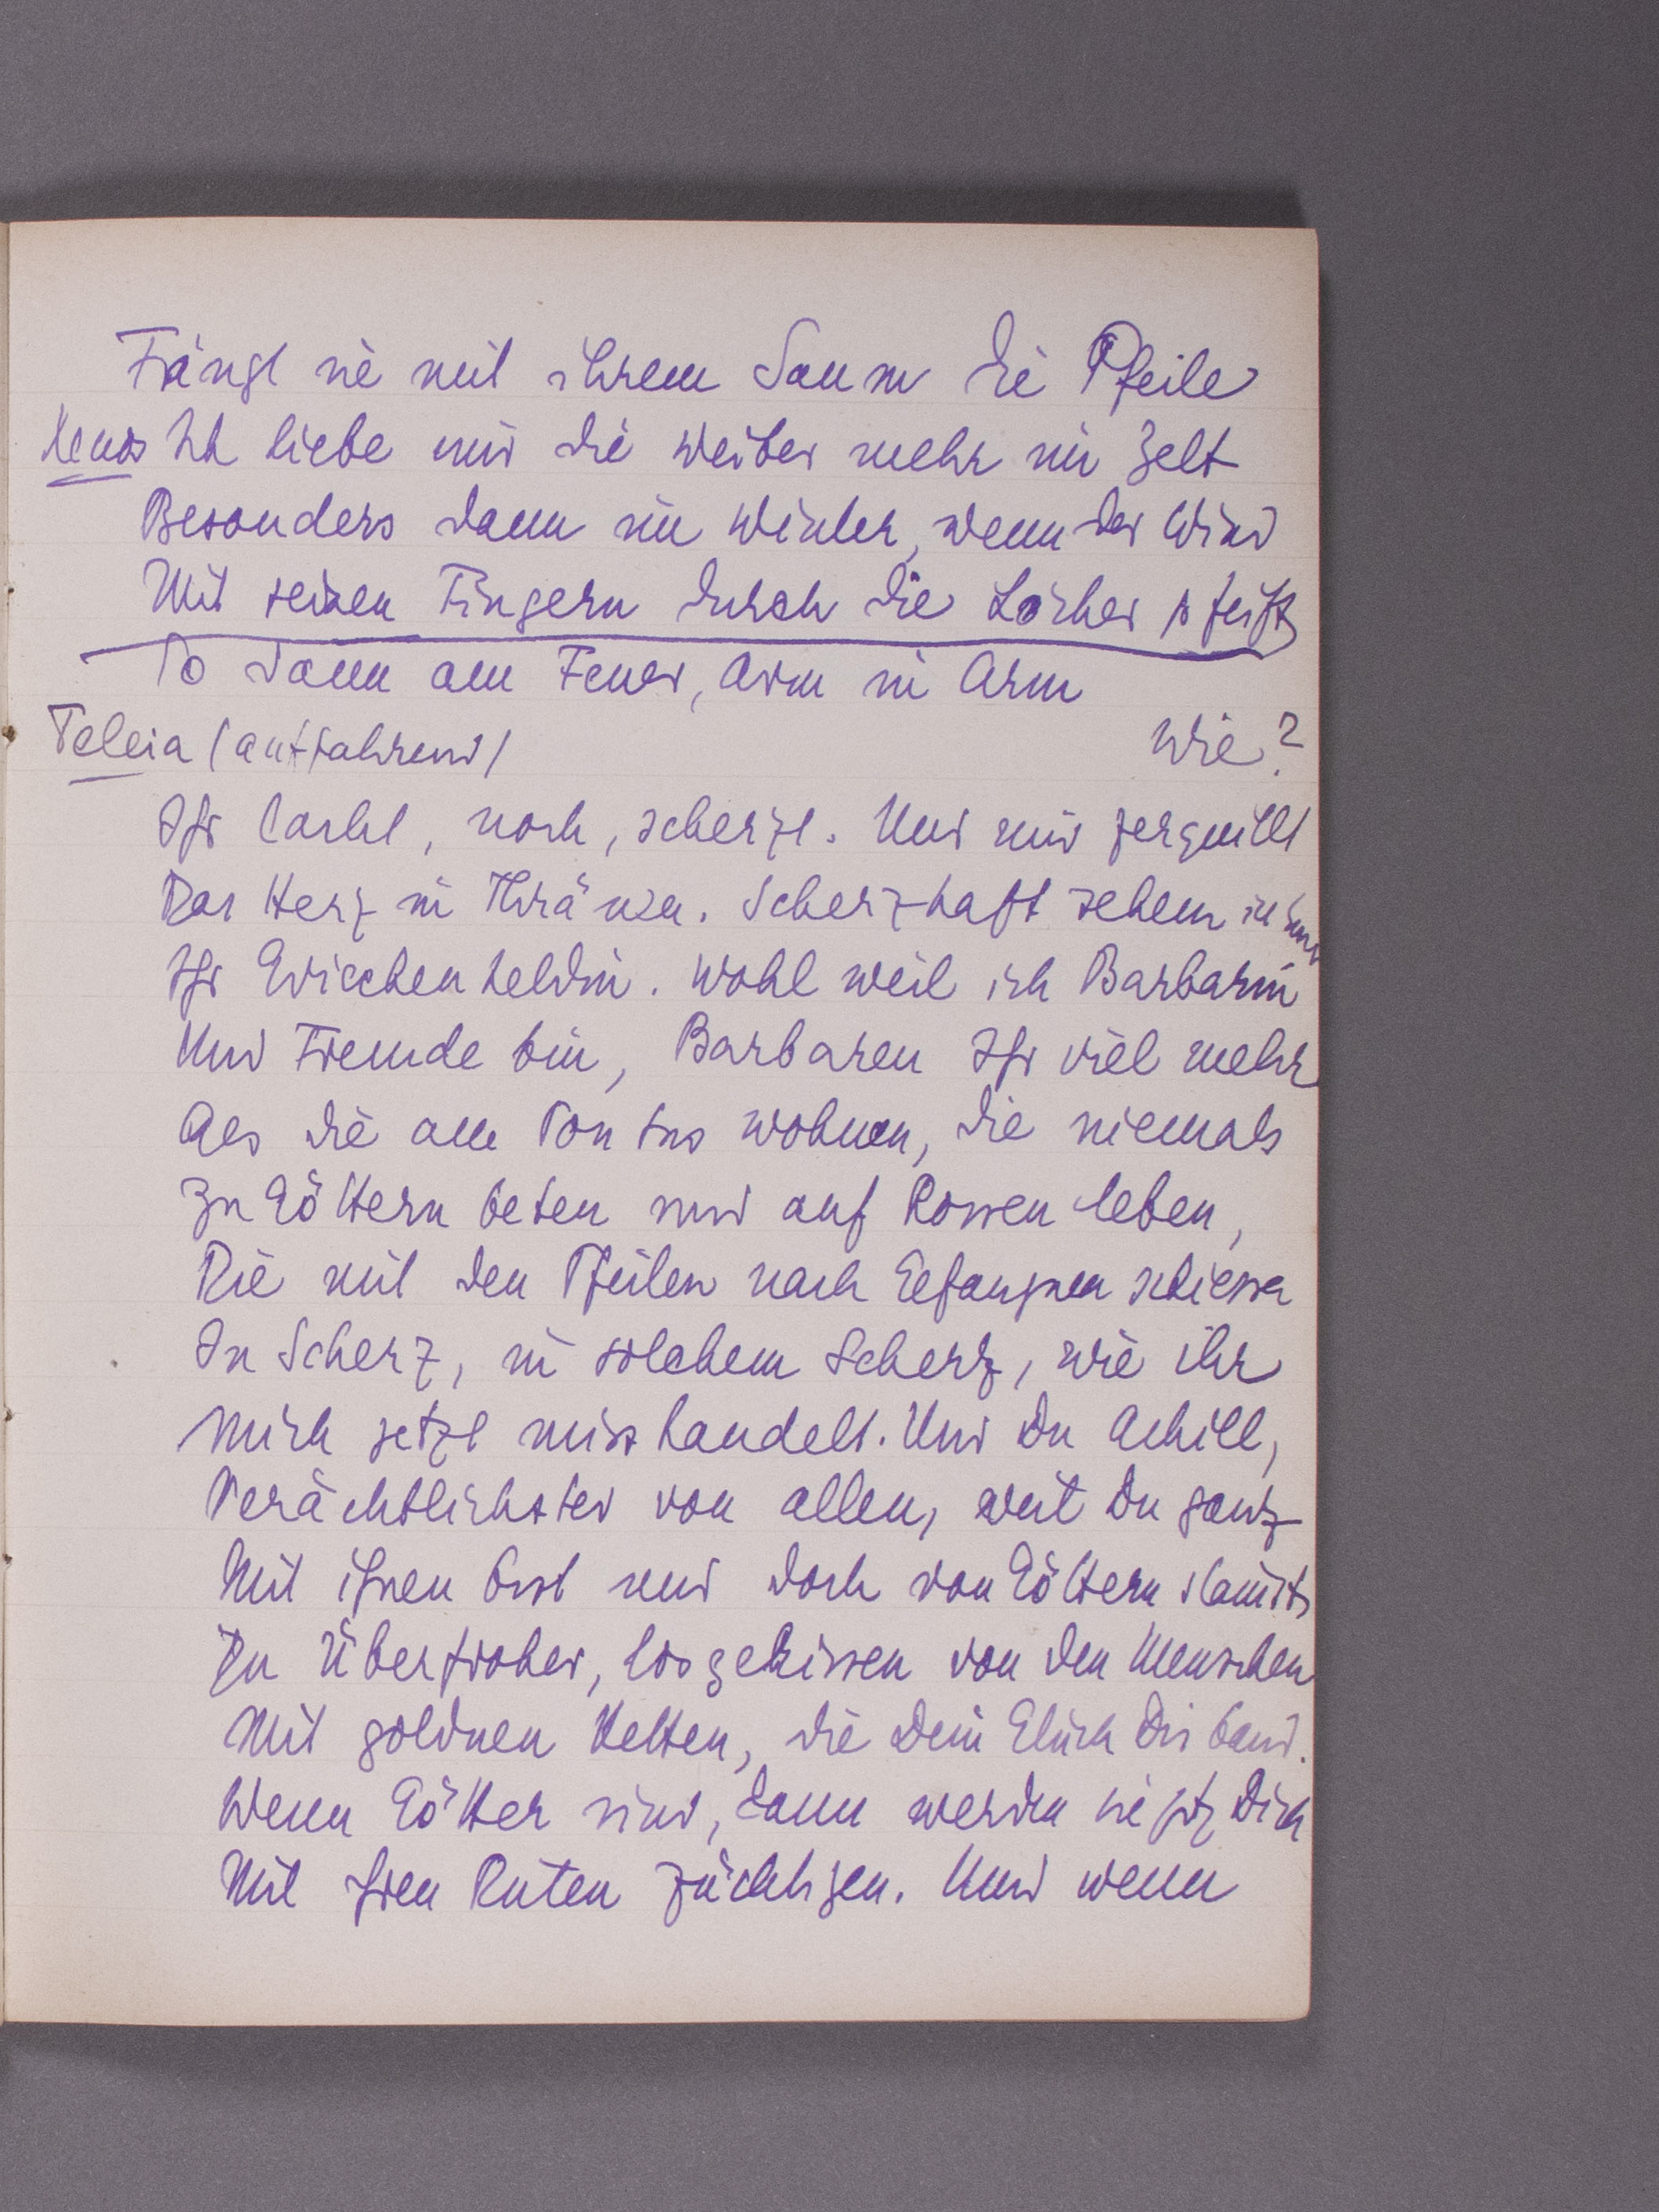 Fängt sie mit ihrem Saum die Pfeile
Xenos Ich liebe mir die Weiber mehr im Zelt
Besonders dann im Winter, wenn der Wind
Mit seinen Fingern durch die Löcher pfeift
So dann am Feuer, Arm in Arm
Teleia (auffahrend) Wie?
Ihr lacht, noch, scherzt. Und mir zerquillt
Das Herz in Thränen. Scherzhaft sehem ich Euch
Ihr Griechenheldin. Wohl weil ich Barbarin
Und Fremde bin, Barbaren Ihr viel mehr
Als die am Pontus wohnen, die niemals
Zu Göttern beten und auf Rossen leben,
Die mit den Pfeilen nach Gefangnen schiessen
In Scherz, in solchem Scherz, wie ihr
Mich jetzt misshandelt. Und Du Achill,
Verächtlichster von allen, weil Du ganz
Mit ihnen bist und doch von Göttern stammst
Du Überfroher, losgerissen von den Menschen
Mit goldnen Ketten, die Dein Glück Dir band.
Wenn Götter sind, dann werden sie jetzt Dich
Mit ihren Ruten züchtigen. Und wenn